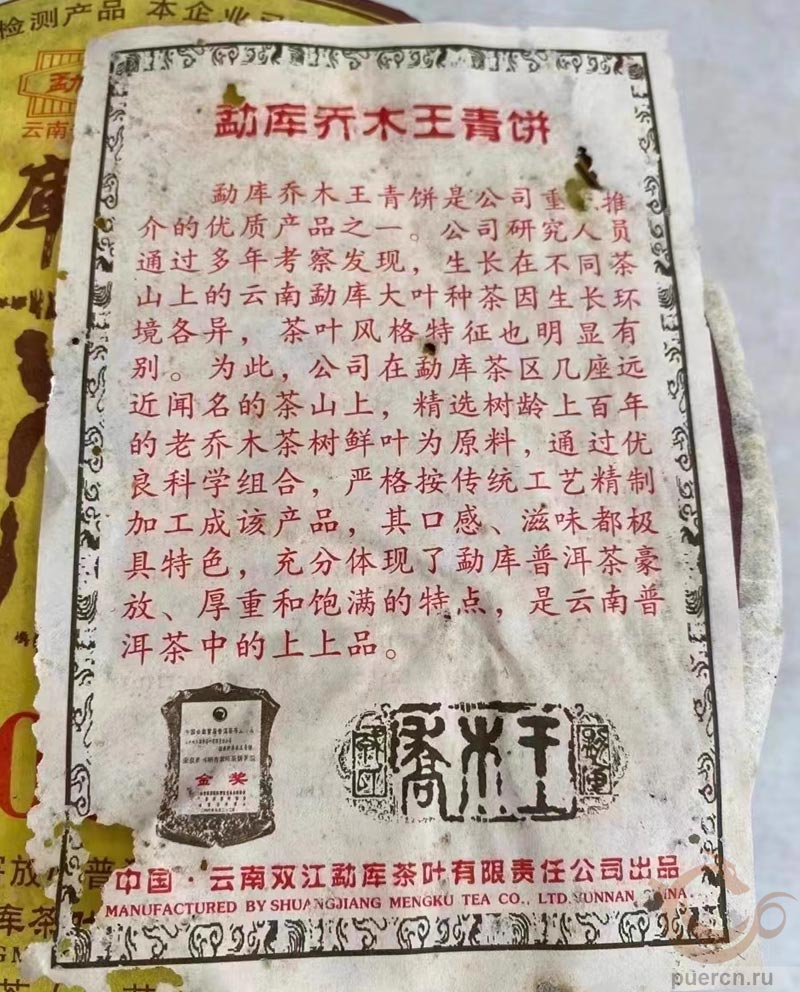 检测产品 本企业
勐
云南
库
勐库乔木王青饼
勐库乔木王青饼是公司重 推
介的优质产品之一。公司研究人员
通过多年考察发现，生长在不同茶
山上的云南勐库大叶种茶因生长环
境各异，茶叶风格特征也明显有
别。为此，公司在勐库茶区几座远
近闻名的茶山上，精选树龄上百年
的老乔木茶树鲜叶为原料，通过优
良科学组合，严格按传统工艺精制
加工成该产品，其口感、滋味都极
具特色，充分体现了勐库普洱茶豪
放、厚重和饱满的特点，是云南普
洱茶中的上上品。
金奖
喬木王
中国·云南双江勐库茶叶有限责任公司出品
MANUFACTURED BY SHUANGJIANG MENGKU TEA CO., LTD.YUNNAN CHINA.
放 普
库茶
puercn.ru